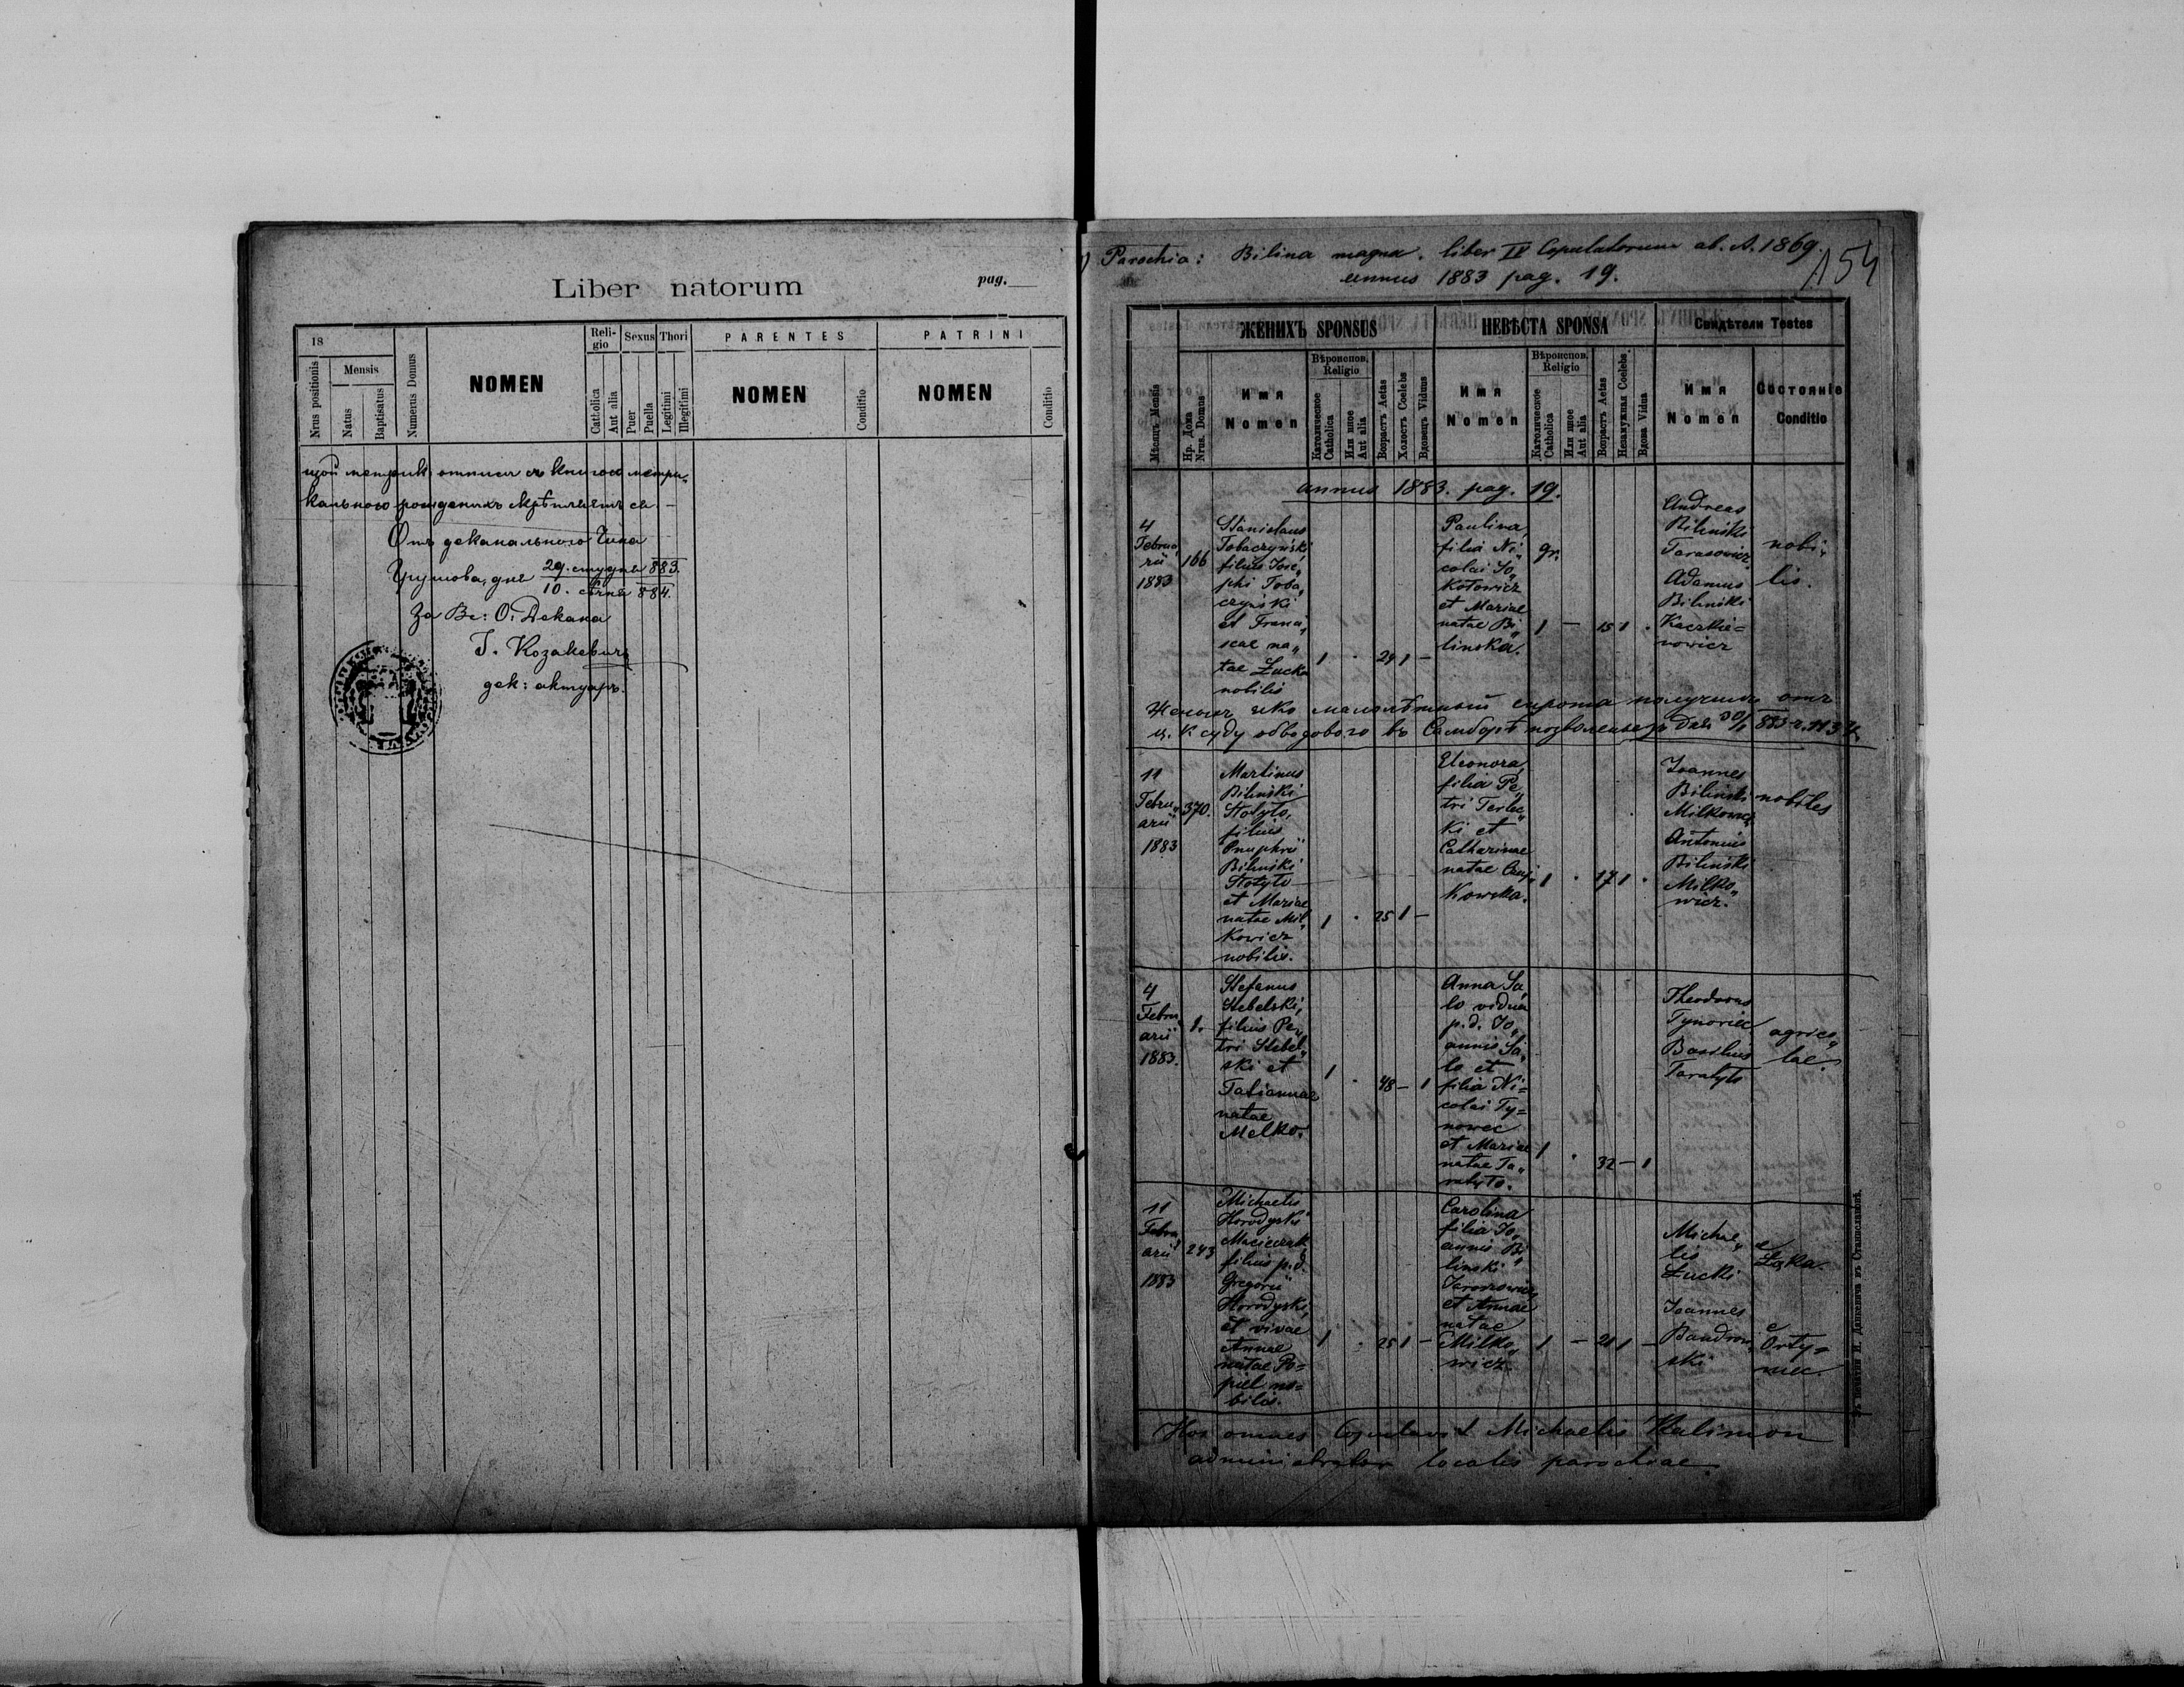 Liber natorum
pag.
18
Nrus positionis
Mensis
Natus
Baptisatus
Numerus Domus
NOMEN
Religio
Catholica
Aut alia
Sexus
Puer
Puella
Thori
Legitimi
Illegitimi
PARENTES
NOMEN
Conditio
PATRINI
NOMEN
Conditio
кального рожденихъ
Отъ деканального Чина
Грушова, дня 29. студня 883.
10. сѣчня 884.
За Вс: О: Декана
Г. Козакевичъ
дек: актуаръ.
Parochia: Bilina magna. liber IV Copulatorum ab. A. 1869.
annus 1883 pag. 19.
154
Мѣсяцъ Mensis
ЖЕНИХЪ SPONSUS
Нр. Дома
Nrus. Domus
Имя
Nomen
Вѣроиспов.
Religio
Католическое
Catholica
Или иное
Aut alia
Возрастъ Aetas
Холостъ Coelebs
Вдовецъ Viduus
НЕВѢСТА SPONSA
Имя
Nomen
Вѣроиспов.
Religio
Католическое
Catholica
Или иное
Aut alia
Возрастъ Aetas
Незамужная Coelebs
Вдова Vidua
Свидѣтели Testes
Имя
Nomen
Состояніе
Conditio
annus 1883. pag. 19.
4
Februa„
rii
1883
166
Stanislaus
Tobaczyński
filius Jose„
phi Toba„
czyński
et Franci„
scae na„
tae Łucka
nobilis
1 · 24 1 –
Paulina
filia Ni„
colai Jo„
Kotowicz
et Mariae
natae Bi„
linska.
gr.
1 – 15 1 ·
Andreas
Biliński
Tarasowicz
Adamus
Biliński
Kaczkie=
nowicz
nobi„
lis.
Женихъ яко малолѣтный сирота получилъ отъ
ц. к суду обводового въ Самборѣ позволенье
11
Febru„
arii
1883
370.
Martinus
Biliński
Stotyto,
filius
Onuphrii
Biliński
Stotyto
et Mariae
natae Mil„
Kowicz
nobilis.
1 · 25 1 –
Eleonora,
filia Pe„
tri Terlec„
ki et
Catharinae
natae Czaj„
Kowska.
1 · 17 1 ·
Joannes
Biliński
Milkowicz
Antonius
Biliński
Milko„
wicz.
nobiles
4
Febru„
arii
1883.
1.
Stefanus
Stebelski,
filius Pe„
tri Stebel„
ski et
Tatiannae
natae
Melko.
1 · 48 – 1
Anna Sa„
lo vidua
p.d. Jo„
annis Sa„
lo et
filia Ni=
colai Ty=
nowec
et Mariae
natae Ta„
ratyto.
1 · 32 – 1
Theodorus
Tynowiec
Basilius
Taratyto
agrico„
lae.
11
Febru„
arii
1883
243
Michaelis
Horodyski
Macieczak,
filius p.d.
Gregorii
Horodyski,
et vivae
Annae
natae Po=
piel no=
bilis.
1 · 25 1 –
Carolina
filia Jo„
annis Bi„
linski
Jaroszowicz
et Annae
natae
Milko„
wicz.
1 – 21 1 –
Michae„
lis
Łucki
e
Łąka.
Joannes
Bandrow„
ski
e
Orty=
nec.
Hos omnes Copulavit Michaelis Kalimon
administrator localis parochiae.